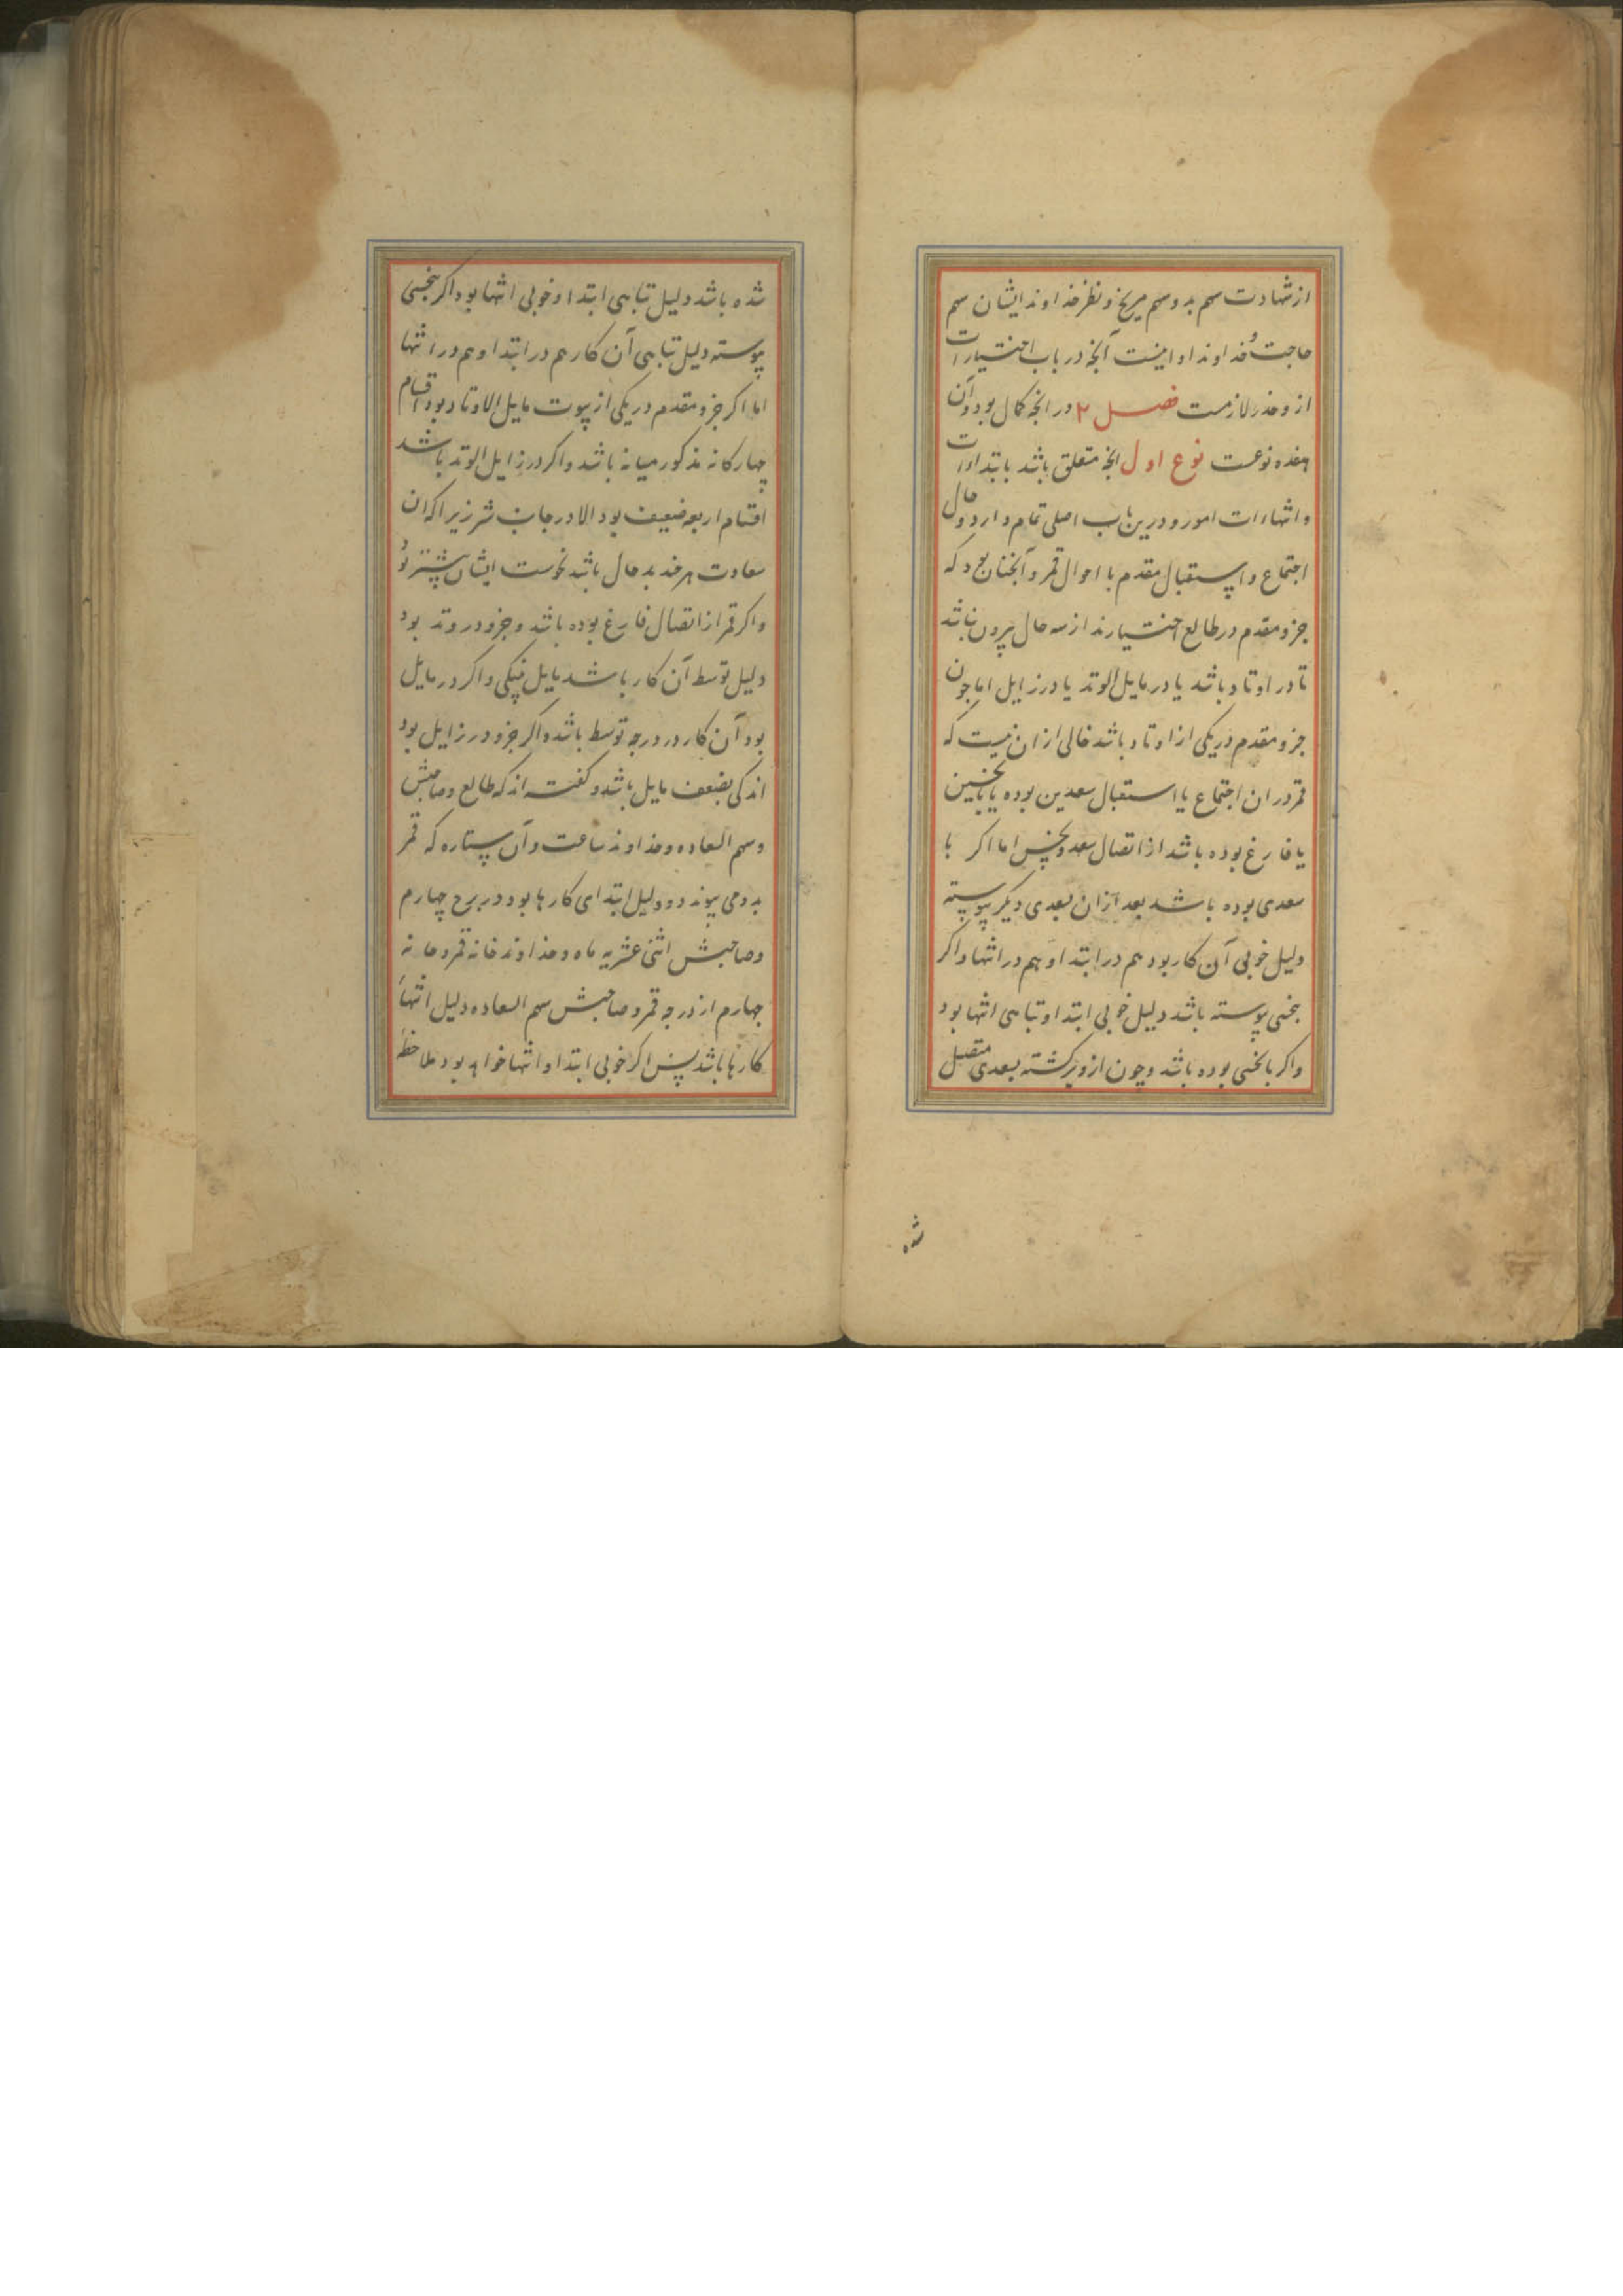 از شهادت سهم بد و سهم مریخ و نظر خداوند ایشان سهم
حاجت و خداوند او اینست آنچه در باب اختیارات
از و حذر لازمست فصل ۲ در انچه کمال بود و آن
هفده نوعست نوع اول انچه متعلق باشد بابتداات
و انتهاات امور و درین باب اصلی تمام دارد و حال
اجتماع و استقبال مقدم با احوال قمر و آنچنان بود که
جزو مقدم در طالع اختیار نداز سه حال بیرون نباشد
تا در اوتاد باشد یا در مایل الوتد یا در زایل اما چون
جزو مقدم در یکی از اوتاد باشد خالی از ان نیست که
قمر در ان اجتماع یا استقبال سعدین بوده یا بانحسین
یا فارغ بوده باشد از اتصال سعد و نحس اما اکر با
سعدی بوده باشد بعد از ان بسعدی دیکر پیوسته
دلیل خوبی آن کار بود هم در ابتدا و هم در انتها و اکر
بنحسی پیوسته باشد دلیل خوبی ابتدا و تباهی انتها بود
و اکر بانحسی بوده باشد و چون ازو برکشته بسعدی متصل
شده
شده باشد دلیل تباهی ابتدا و خوبی انتها بود اکر بنحسی
پیوسته دلیل تباهی آن کار هم در ابتدا و هم در انتها
اما اکر جزو مقدم در یکی از بیوت مایل الاوتاد بود اقسام
چهارکانه مذکور میانه باشد و اکر در زایل الوتد باشد
اقسام اربعه ضعیف بود الا در جانب شر زیرا که ان
سعادت هر خند بد حال باشد نحوست ایشان بیشتر بود
و اکر قمر از اتصال فارغ بوده باشد و جزو در وتد بود
دلیل توسط آن کار باشد مایل بنیکی و اکر در مایل
بود آن کار در درجه توسط باشد و اکر جزو در زایل بود
اندکی بضعف مایل باشد و کفته اند که طالع و صاحبش
و سهم السعاده و خداوند ساعت و آن ستاره که قمر
بدو می پیوندد و دلیل ابتدای کارها بود و در برج چهارم
و صاحبش اثنی عشریه ماه و خداوند خانه قمر و خانه
چهارم از درجه قمر و صاحبش سهم السعاده دلیل انتهاء
کارها باشد پس اکر خوبی ابتدا و انتها خواهد بود ملاحظه